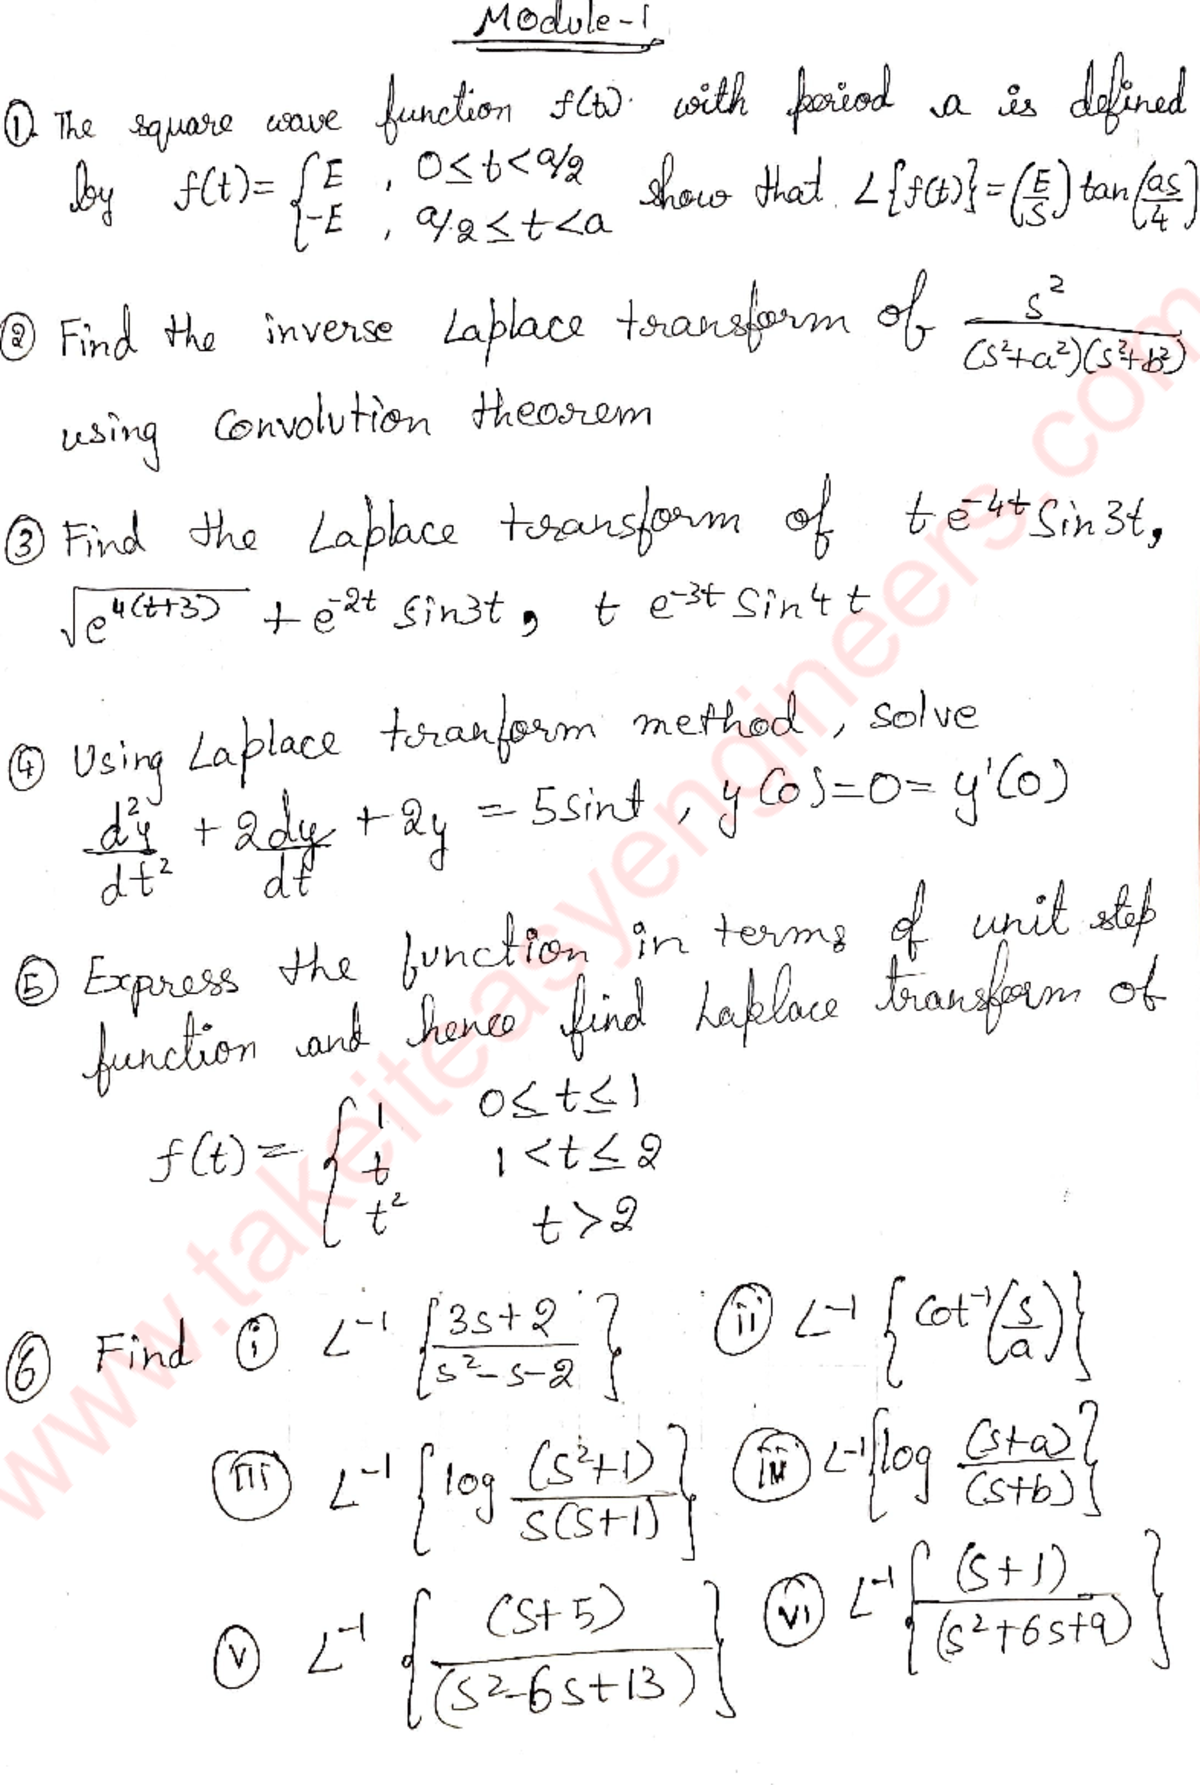 Module-1
① The square wave function f(t). with period a is defined
by f(t)= { E , 0≤t<a/2
-E , a/2≤t<a show that. L{f(t)}=(E/S) tan(as/4)
② Find the inverse Laplace transform of s²/((s²+a²)(s²+b²))
using Convolution theorem
③ Find the Laplace transform of t e^-4t Sin 3t,
√e^4(t+3) + e^-2t Sin3t, t e^-3t Sin4t
④ Using Laplace tranform method, solve
d²y/dt² + 2dy/dt + 2y = 5sint, y(0)=0=y'(0)
⑤ Express the function in terms of unit step
function and hence find Laplace transform of
f(t)= { 1 0≤t≤1
t 1<t≤2
t² t>2
⑥ Find ⓘ L^-1 {3s+2/s²-s-2} ⓘⓘ L^-1 {Cot^-1(s/a)}
(iii) L^-1 {log (s²+1)/s(s+1)} (iv) L^-1{log (s+a)/(s+b)}
(v) L^-1 {(s+5)/(s²-6s+13)} (vi) L^-1{(s+1)/(s²+6s+9)}
www.takeiteasyengineers.com